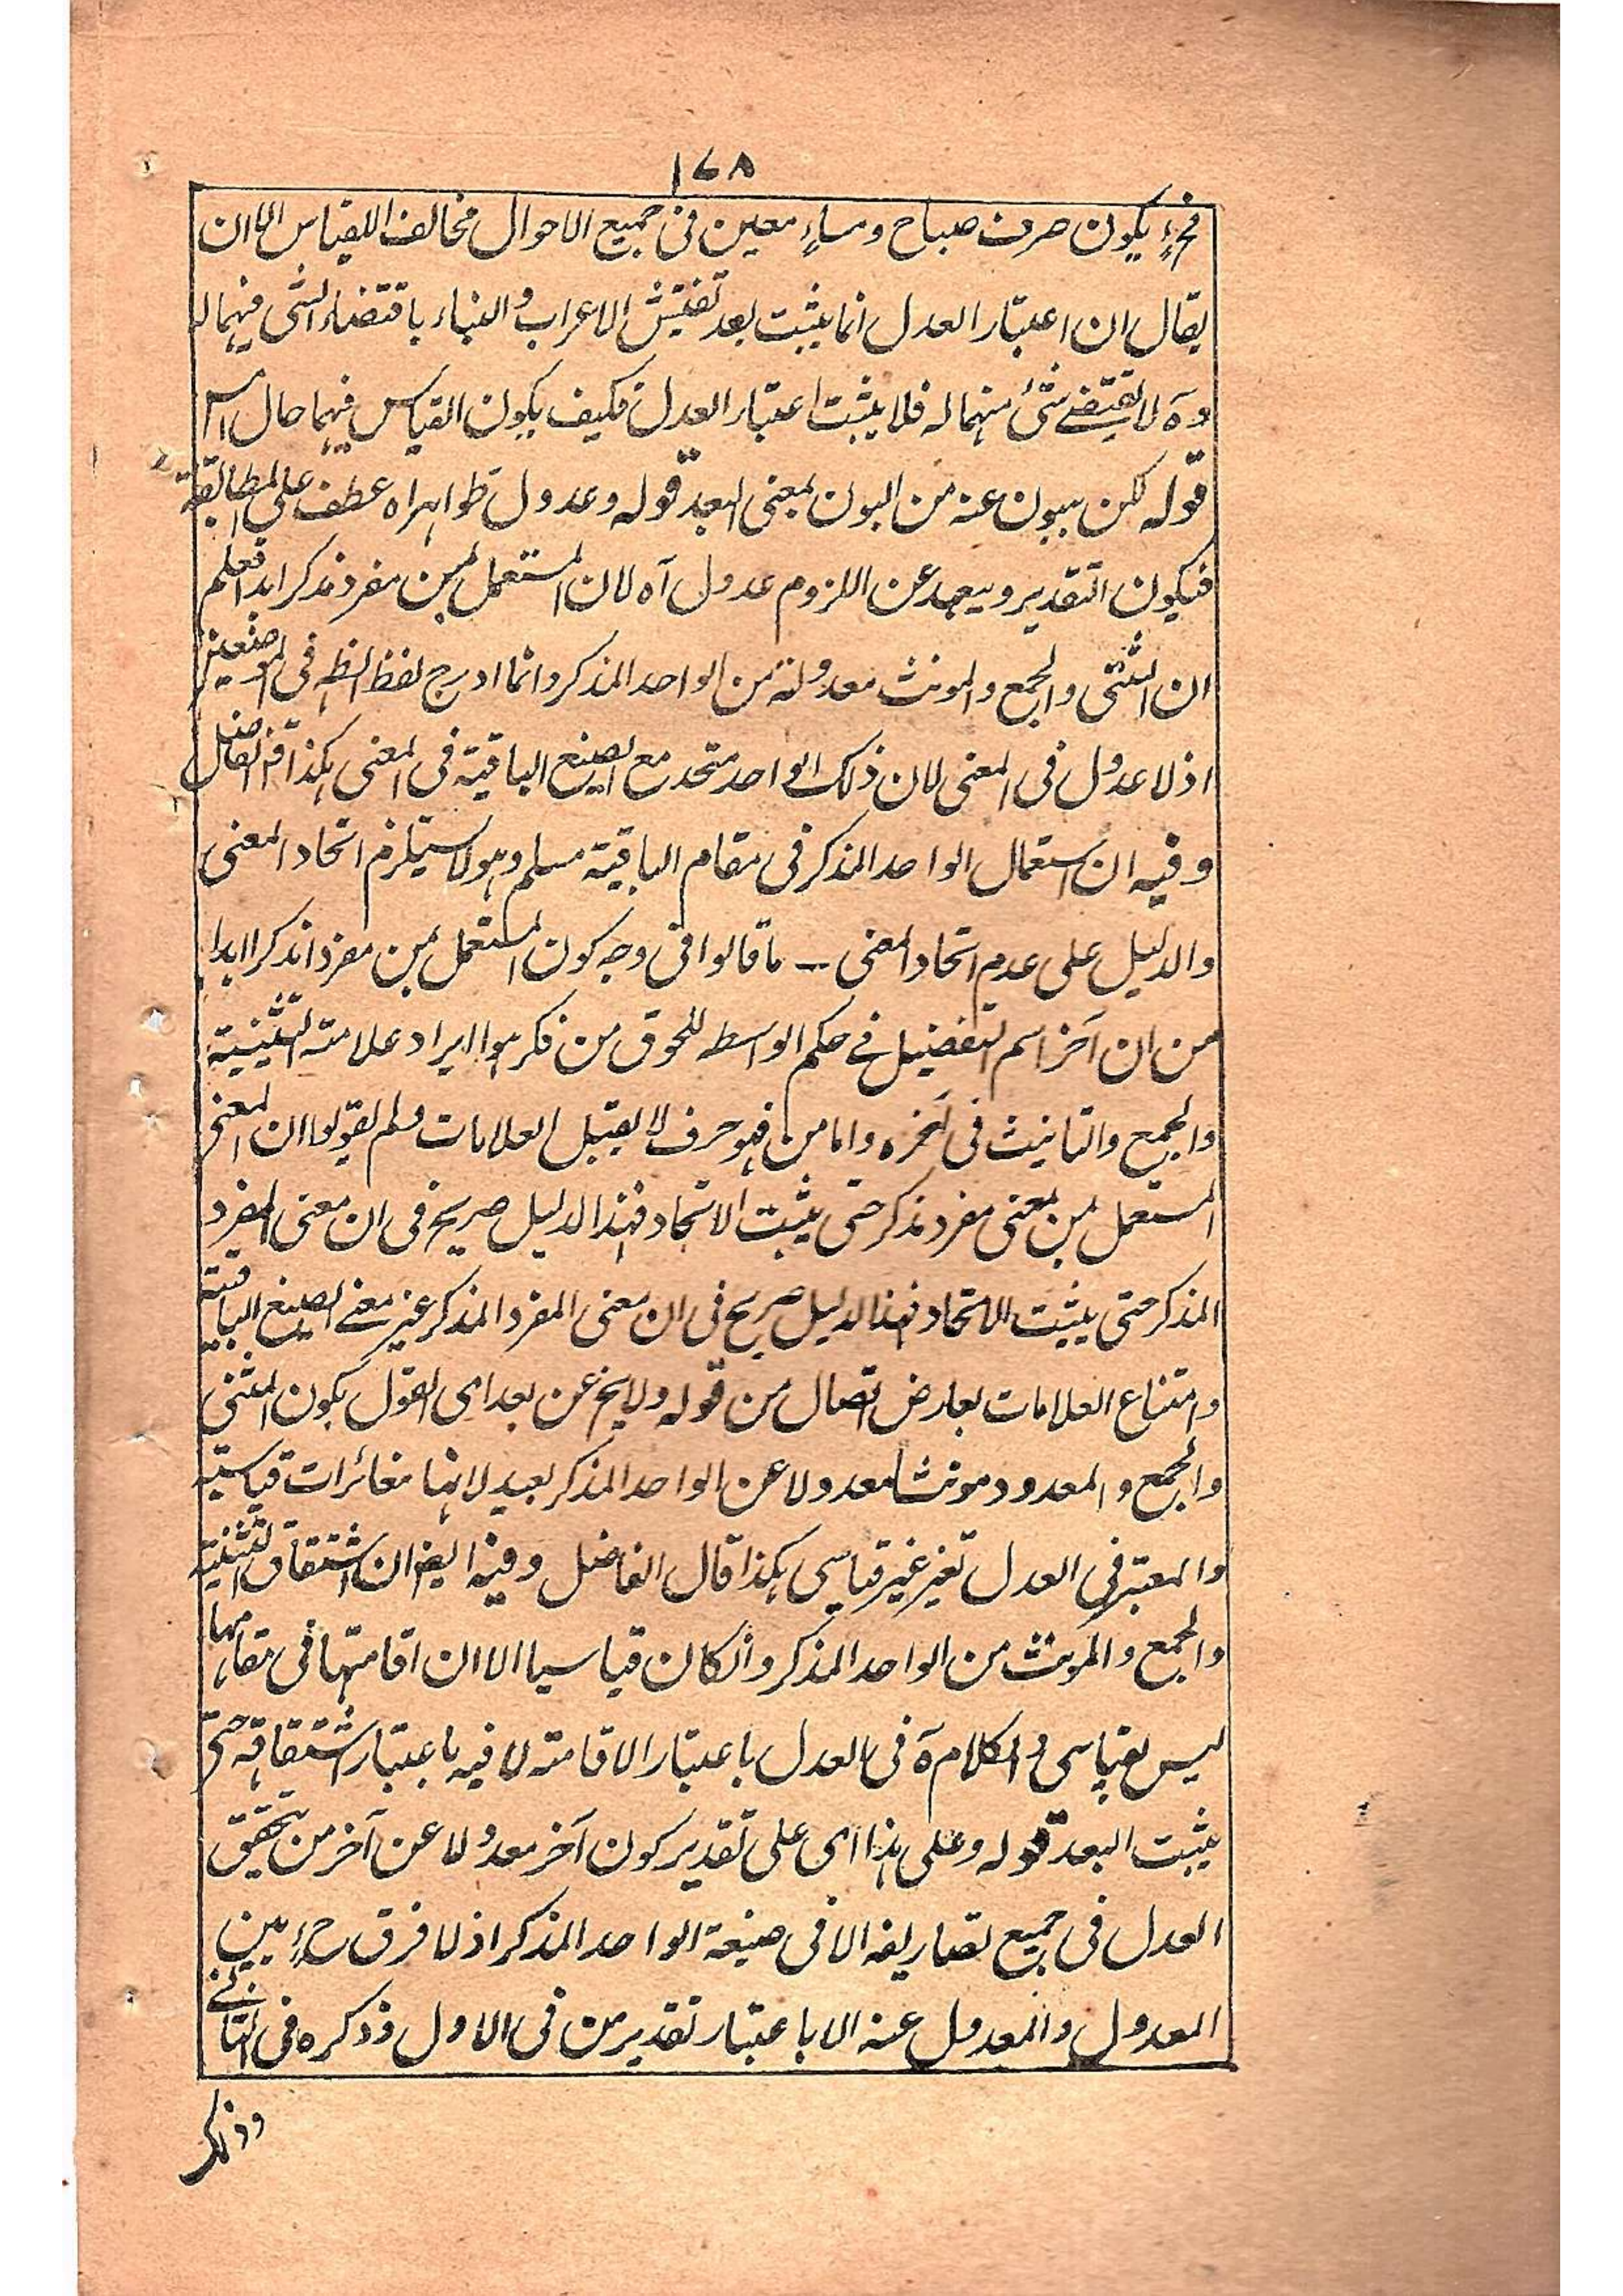 ١٤٨
فحٍ يكون صرف صباح ومساءٍ معين فى جميع الاحوال مخالفا للقياس الا ان
يقال ان اعتبار العدل انما يثبت بعد تفتيش الاعراب والبناء باقتضاء الشى منهما لہ
وہ لا يقتضے شئ منهما له فلا يثبت اعتبار العدل فكيف يكون القياس فيهما حال امس
قوله لكن يبون عنه من البون بمعنى البعد قوله وعدول ظواهراہ عطف على المطابقة
فيكون التقدير ويبعد عن اللزوم عدول آہ لان المستعمل بمن مفرد مذكر ابدا فعلم
ان المثنى والجمع والمونث معدولة من الواحد المذكر وانما ادرج لفظ الظہ فى الموضعين
اذ لا عدول فى المعنى لان ذلك الواحد متحد مع الصيغ الباقية فى المعنى هكذا قز الفاضل
وفيه ان استعمال الواحد المذكر فى مقام الباقية مسلم وهو لا يستلزم اتحاد المعنى
والدليل على عدم اتحاد المعنى – ما قالوا فى وجه كون المستعمل بمن مفردا مذكرا ابدا
من ان آخر اسم التفضيل فے حكم الواسطہ للحوق من فكرهوا ايراد علامتہ التثنيۃ
والجمع والتانيث فى آخره واما من فهو حرف لا يقبل العلامات ولم يقولوا ان المعنى
المستعمل بمن بمعنى مفرد مذكر حتى يثبت الاتحاد فهذا الدليل صريح فى ان معنى المفرد
المذكر حتى يثبت الاتحاد فهذا الدليل صريح فى ان معنى المفرد المذكر غير معنے الصيغ الباقية
وامتناع العلامات بعارض اتصال من قوله ولا يخ عن بعد اى القول بكون المثنى
والجمع والمعدود مونثا معدولا عن الواحد المذكر بعيد لانها مغائرات قياسيۃ
والمعتبر فى العدل تغير غير قياسى هكذا قال الفاضل وفيه ايضا ان اشتقاق التثنيۃ
والجمع والمونث من الواحد المذكر وانكان قياسيا الا ان اقامتها فى مقامها
ليس بقياسى والكلام آہ فى العدل باعتبار الاقامتہ لا فيه باعتبار اشتقاقہ حتى
يثبت البعد قوله وعلى هذا اى على تقدير كون آخر معدولا عن آخر من يتحقق
العدل فى جميع تصاريفه الا فى صيغة الواحد المذكر اذ لا فرق حٍ بين
المعدول والمعدول عنہ الا باعتبار تقدير من فى الاول وذكره فى الثانے
وذكر